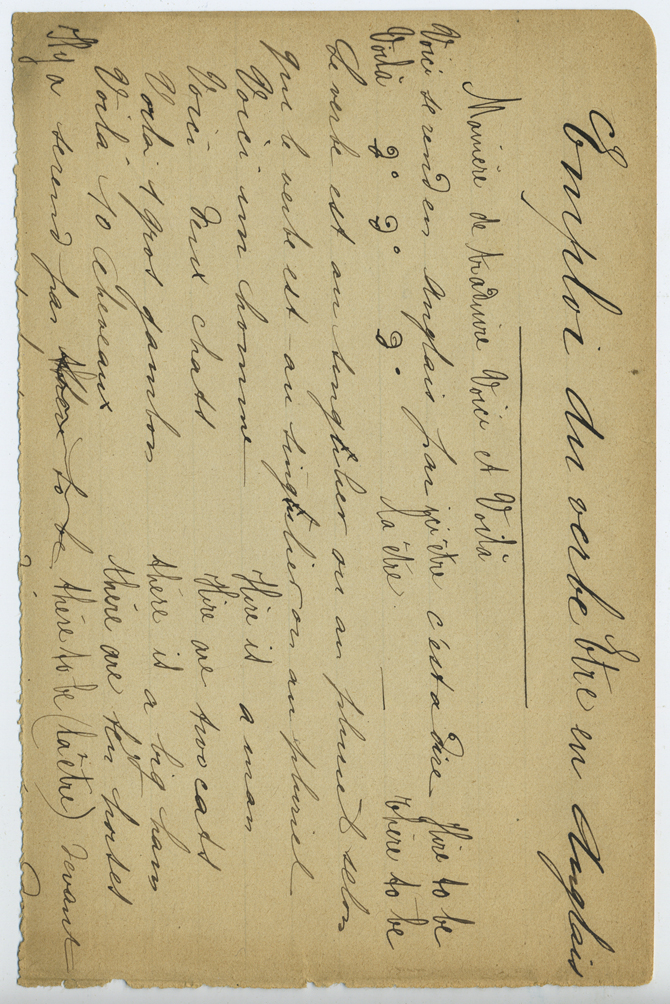 Emploi du verbe Etre en Anglais
Manière de traduire Voici et Voilà
Voici se rend en Anglais par ici être c'est a dire Hire to be
Voilà d° d° d° La être. — thère to be
Le verbe est au singulier ou au pluriel selon
que le verbe est au singulier ou au pluriel
Voici un homme — Hire is a man
Voici deux chats Hire are two cats
Voilà 1 gros jambon thère is a big ham
Voila 10 chevaux thère are ten horses
Il y a se rend par to be thère to be (La être) devant